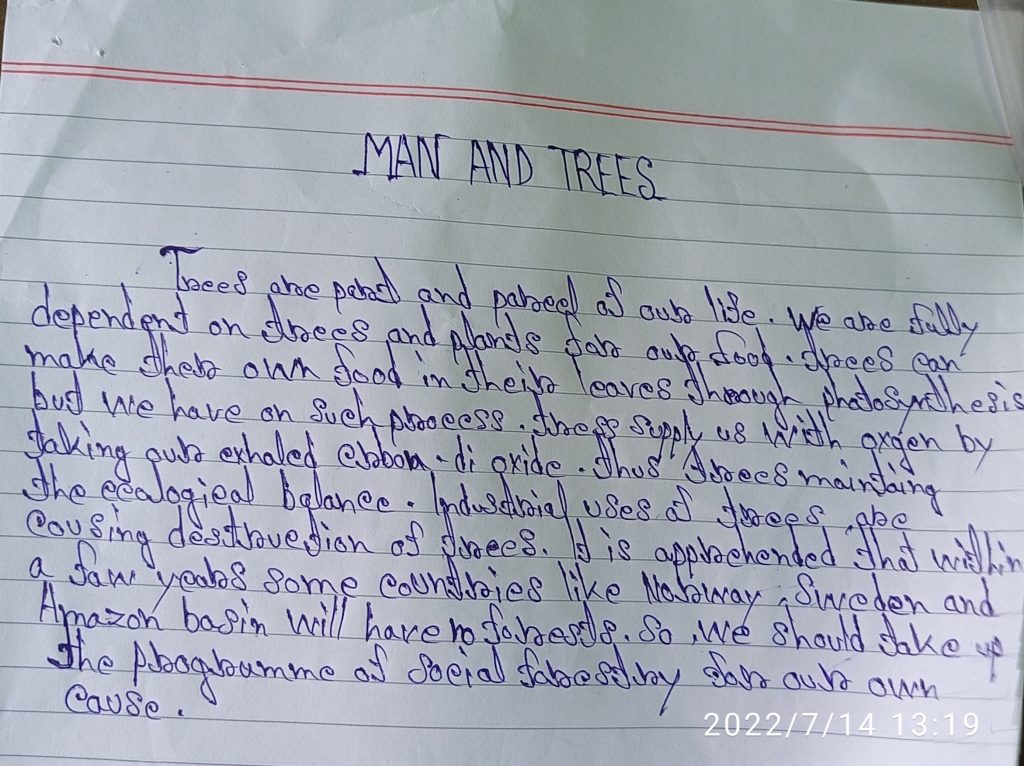 MAN AND TREES
Trees are part and parcel of our life. We are fully
dependent on trees and plants for our food. trees can
make ther own food in their leaves through photosynthesis
but we have on such process. tress supply us with oxgen by
taking our exhaled crbon-di oxide. thus trees maintaing
the ecalogical balance. Industrial uses of trees are
causing destruction of trees. It is apprehended that within
a faw years some countries like Norway, Sweden and
Amazon basin will have no forests. So, we should take up
the programme of social forestry for our own
cause.
2022/7/14 13:19